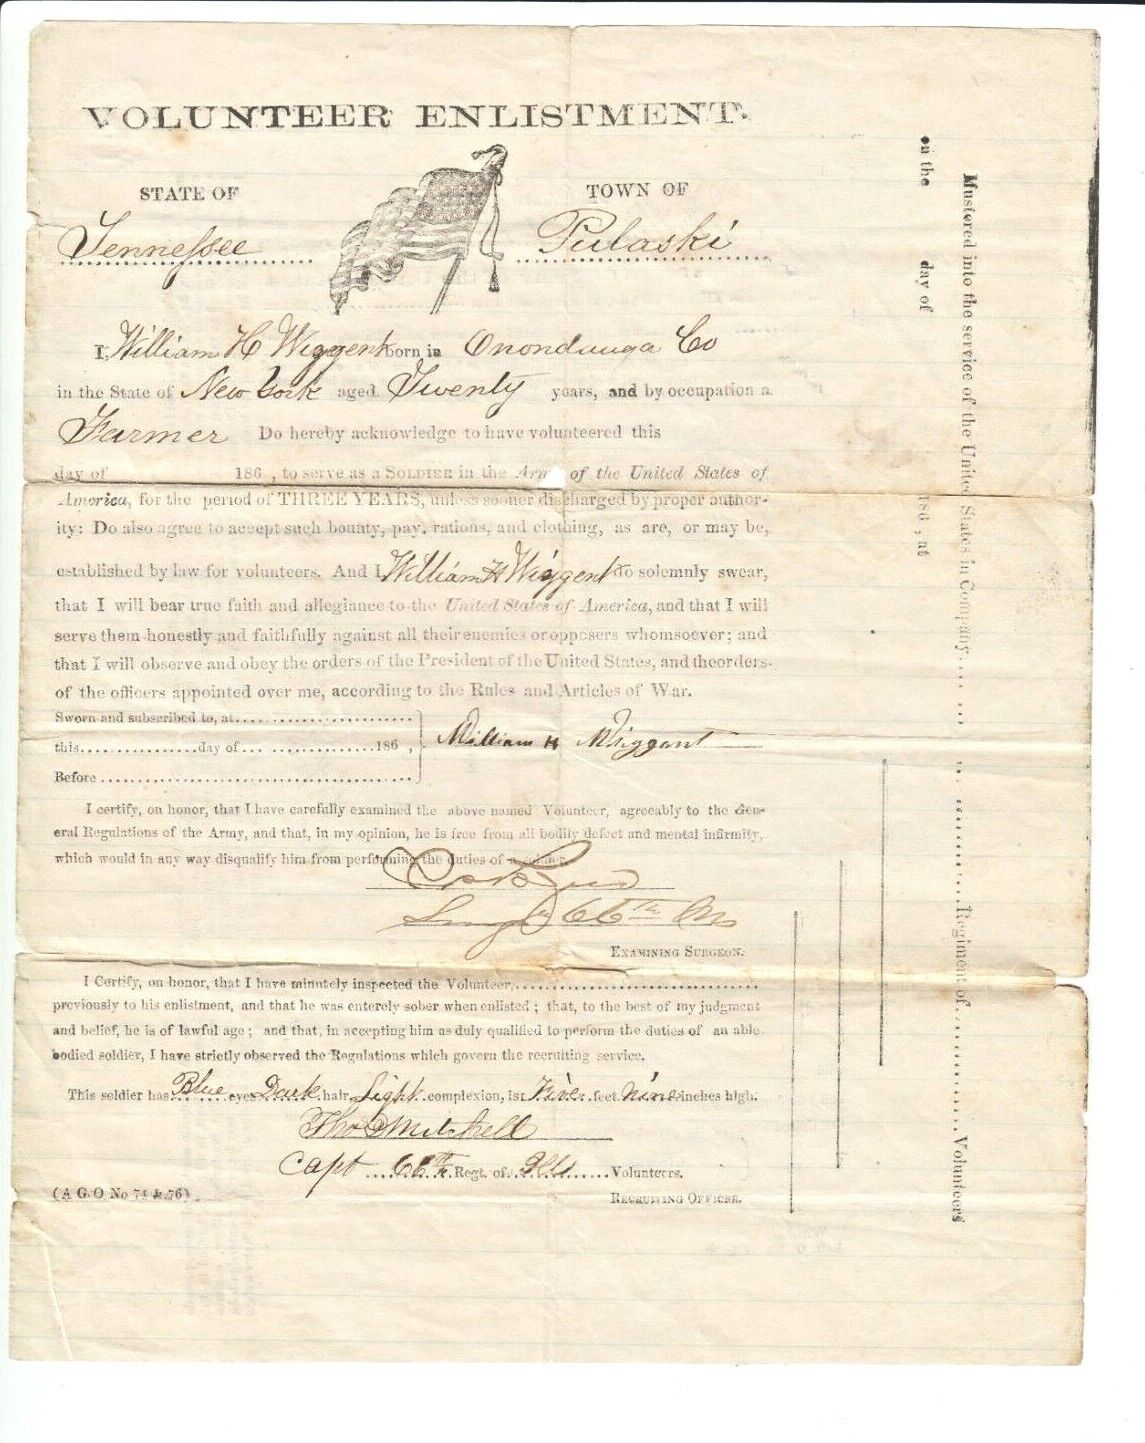 VOLUNTEER ENLISTMENT.
STATE OF
TOWN OF
Tennessee
Pulaski
I, William H Wiggent born in Onondauga Co
in the State of New York aged Twenty years, and by occupation a
Farmer Do hereby acknowledge to have volunteered this
day of 186 , to serve as a SOLDIER in the Arm of the United States of
America, for the period of THREE YEARS, unless sooner discharged by proper author-
ity: Do also agree to accept such bounty, pay, rations, and clothing, as are, or may be,
established by law for volunteers. And I William H Wiggent do solemnly swear,
that I will bear true faith and allegiance to the United States of America, and that I will
serve them honestly and faithfully against all their enemies or opposers whomsoever; and
that I will observe and obey the orders of the President of the United States, and the orders
of the officers appointed over me, according to the Rules and Articles of War.
Sworn and subscribed to, at
this day of 186 , William H Wiggant
Before
I certify, on honor, that I have carefully examined the above named Volunteer, agreeably to the Gen-
eral Regulations of the Army, and that, in my opinion, he is free from all bodily defect and mental infirmity,
which would in any way disqualify him from performing the duties of a soldier.
66th
EXAMINING SURGEON.
I Certify, on honor, that I have minutely inspected the Volunteer,
previously to his enlistment, and that he was enterely sober when enlisted; that, to the best of my judgment
and belief, he is of lawful age; and that, in accepting him as duly qualified to perform the duties of an able
bodied soldier, I have strictly observed the Regulations which govern the recruiting service.
This soldier has Blue eyes Dark hair Light complexion, is Five feet Nine inches high.
Tho Mitchell
Capt 66th Regt. of Ills Volunteers.
(A G O No 74 & 76)
RECRUITING OFFICER.
Mustered into the service of the United States in Company Regiment of Volunteers
on the day of 186 , at